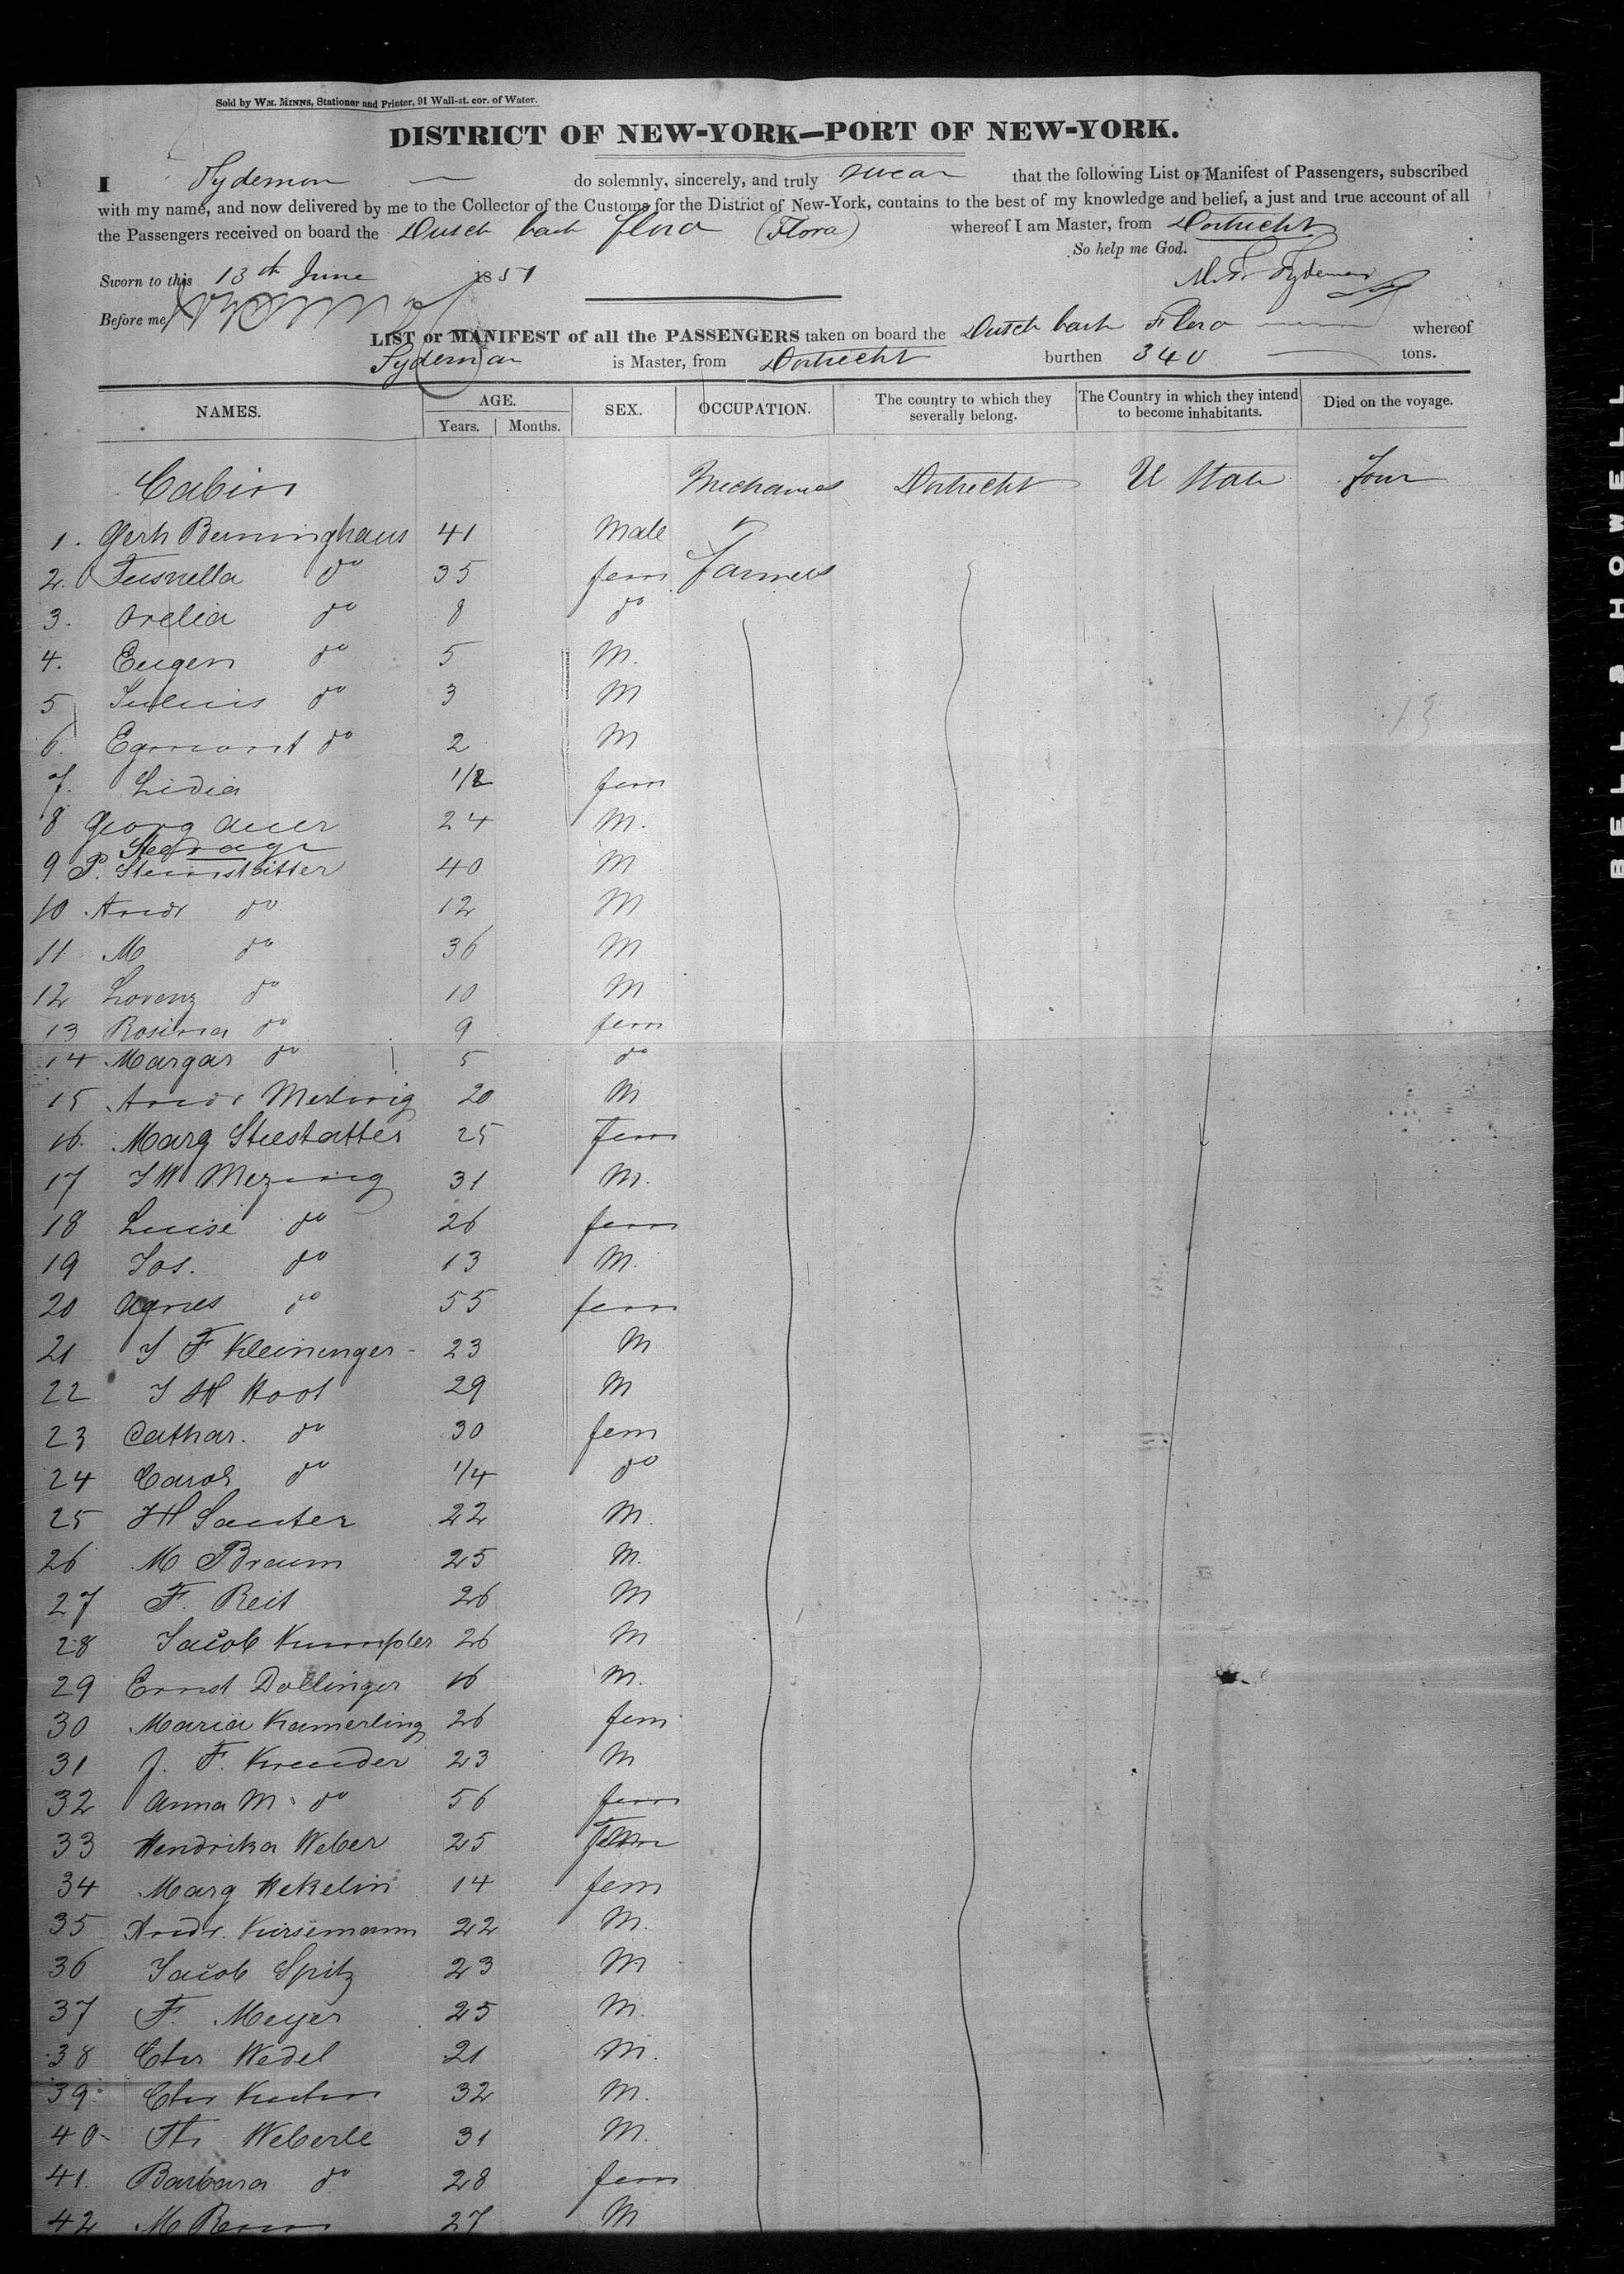 Sold by WM. MINNS, Stationer and Printer, 91 Wall-st. cor. of Water.
DISTRICT OF NEW-YORK—PORT OF NEW-YORK.
I Tydeman do solemnly, sincerely, and truly swear that the following List or Manifest of Passengers, subscribed
with my name, and now delivered by me to the Collector of the Customs for the District of New-York, contains to the best of my knowledge and belief, a just and true account of all
the Passengers received on board the Dutch bark Flora (Flora) whereof I am Master, from Dortrecht
So help me God.
Sworn to this 13th June 1851 Tydeman
Before me
LIST or MANIFEST of all the PASSENGERS taken on board the Dutch bark Flora whereof
Tydeman is Master, from Dortrecht burthen 340 tons.
NAMES. AGE. Years. Months. SEX. OCCUPATION. The country to which they severally belong. The Country in which they intend to become inhabitants. Died on the voyage.
Cabin Mechanics Dortrecht U State Four
1. Gerh Berninghaus 41 Male
2. Tusnella do 35 fem Farmers
3. Orelia do 8 do
4. Eugen do 5 M.
5 Julius do 3 M
6. Egmont do 2 M
7. Lidia 1/2 fem
8 Georg Auer 24 M.
Steerage
9 P. Steinstätter 40 M
10 Andr do 12 M
11 M do 36 M
12 Lorenz do 10 M
13 Rosina do 9 fem
14 Margar do 5 do
15 Andr 20 M
16. Marg 25 Fem
17 J W 31 M.
18 Luise do 26 fem
19 Jos. do 13 M.
20 Agnes do 55 fem
21 J F Kleininger 23 M
22 J H Hoot 29 M
23 Cathar. do 30 fem
24 Carol do 1/4 do
25 JH Sauter 22 M.
26 M Braun 25 M.
27 F. Reit 26 M
28 Jacob Kumpler 26 M
29 Ernst Dollinger 16 M.
30 Maria Kamerling 26 fem
31 J. F. Kreuder 23 M
32 Anna M. do 56 fem
33 Hendrika Weber 25 fem
34 Marg Hekelin 14 fem
35 Andr. Kirsemann 22 M.
36 Jacob Spitz 23 M
37 F. Meyer 25 M.
38 Chr Wedel 21 M.
39. Chr Kuhn 32 M.
40- Th. Weberle 31 M.
41. Barbara do 28 fem
42 M 27 M
13
BELL & HOWELL